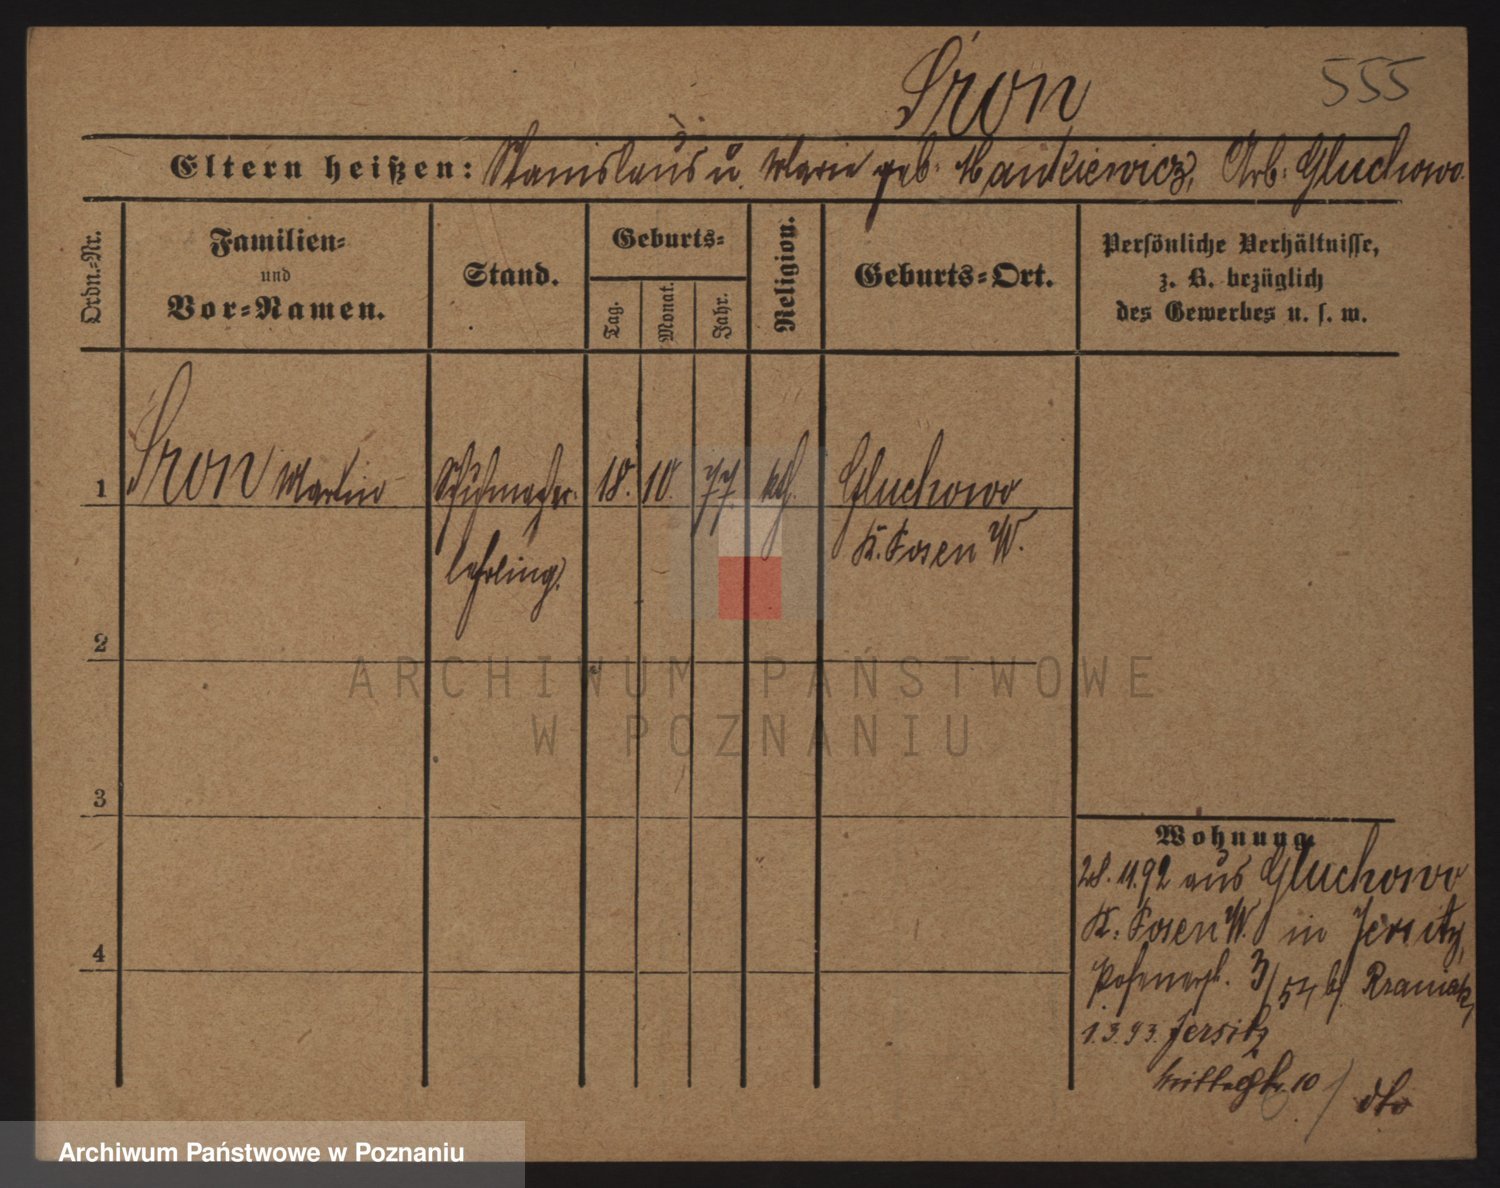 Śron 555
Eltern heißen: Stanislaus u. Marie geb. Mankiewicz, Arb. Gluchowo.
Ordn.-Nr.
Familien-
und
Vor-Namen.
Stand.
Geburts-
Tag.
Monat.
Jahr.
Religion.
Geburts-Ort.
Persönliche Verhältnisse,
z. B. bezüglich
des Gewerbes u. s. w.
1 Śron Martin Schuhmacher- 18. 10. 77. kth. Gluchowo
lehrling. K. Posen W.
2
3
4
Wohnung.
28. 11. 92 aus Gluchowo
K. Posen W. in Jersitz,
Posenerst. 3/54 bf.
1. 3. 93. Jersitz
10/ dto
ARCHIWUM PAŃSTWOWE
W POZNANIU
Archiwum Państwowe w Poznaniu